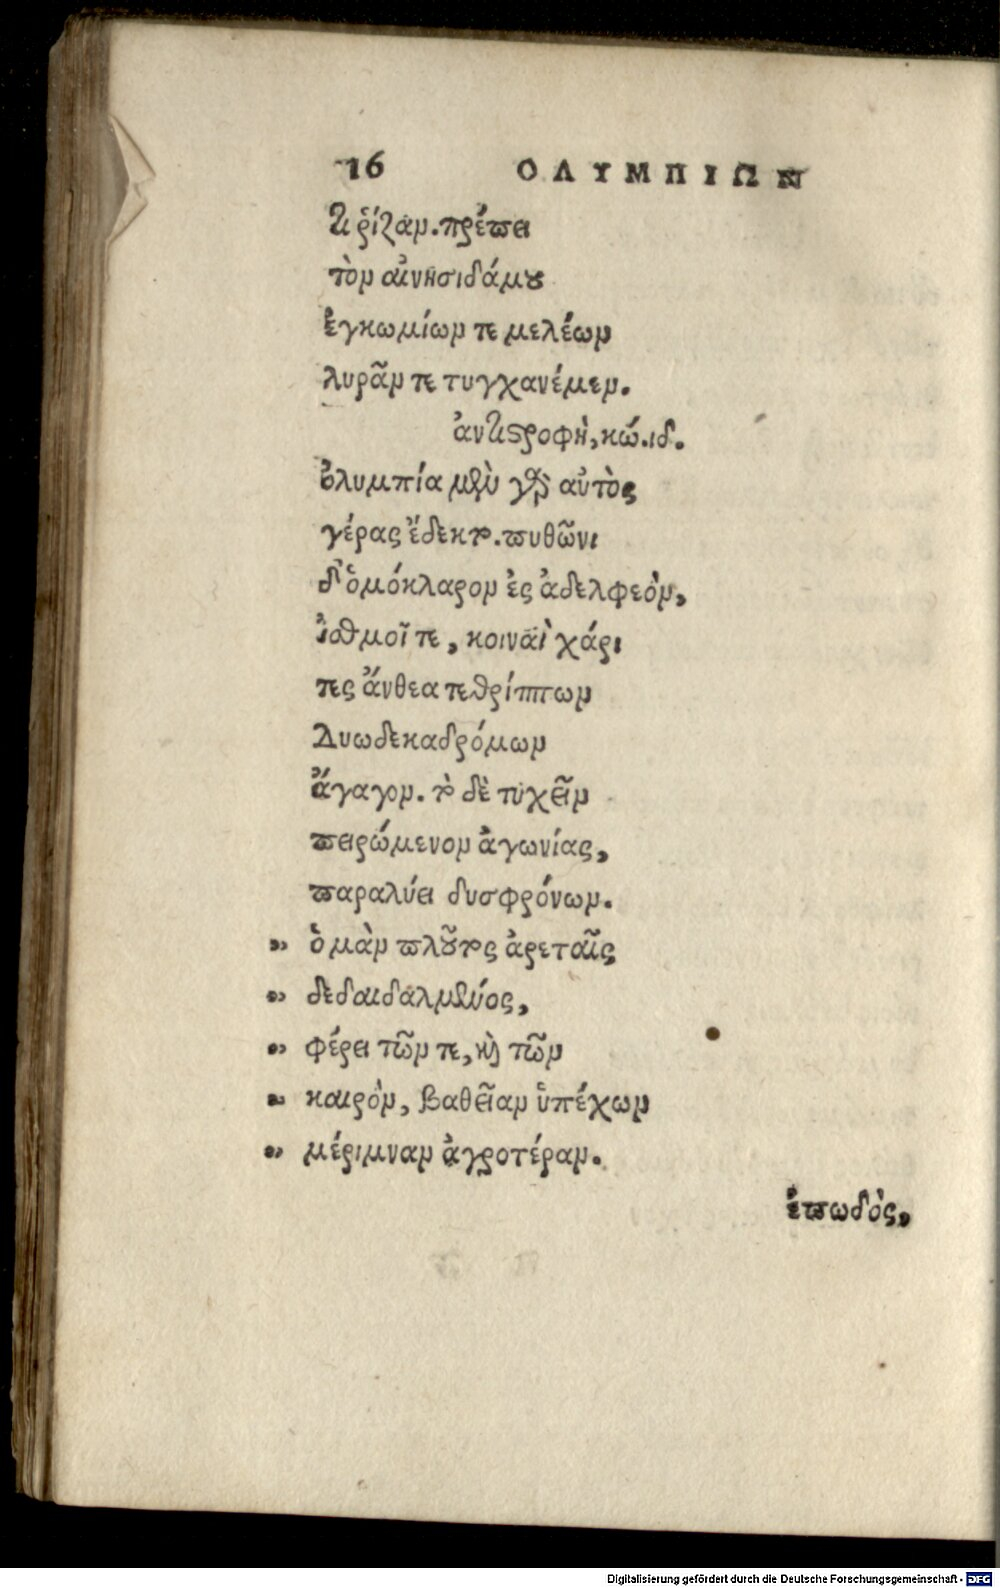 16 ΟΛΥΜΠΙΩΝ
τι ῥίζαν. πρέπει
τὸν αἰνησιδάμου
ἐγκωμίων τε μελέων
λυρᾶν τε τυγχανέμεν.
ἀντιστροφὴ, κώ. ιδ.
ὀλυμπία μὲν γὰρ αὐτὸς
γέρας ἔδεκτο. πυθῶνι
δ' ὁμόκλαρον ἐς ἀδελφεὸν,
ἰσθμοῖ τε, κοιναὶ χάρι
τες ἄνθεα τεθρίππων
Δυωδεκαδρόμων
ἄγαγον. τὸ δὲ τυχεῖν
πειρώμενον ἀγωνίας,
παραλύει δυσφρόνων.
" ὁ μὰν πλοῦτος ἀρεταῖς
" δεδαιδαλμένος,
" φέρει τῶν τε, καὶ τῶν
" καιρὸν, βαθεῖαν ὑπέχων
" μέριμναν ἀγροτέραν.
ἐπωδὸς,
Digitalisierung gefördert durch die Deutsche Forschungsgemeinschaft - DFG